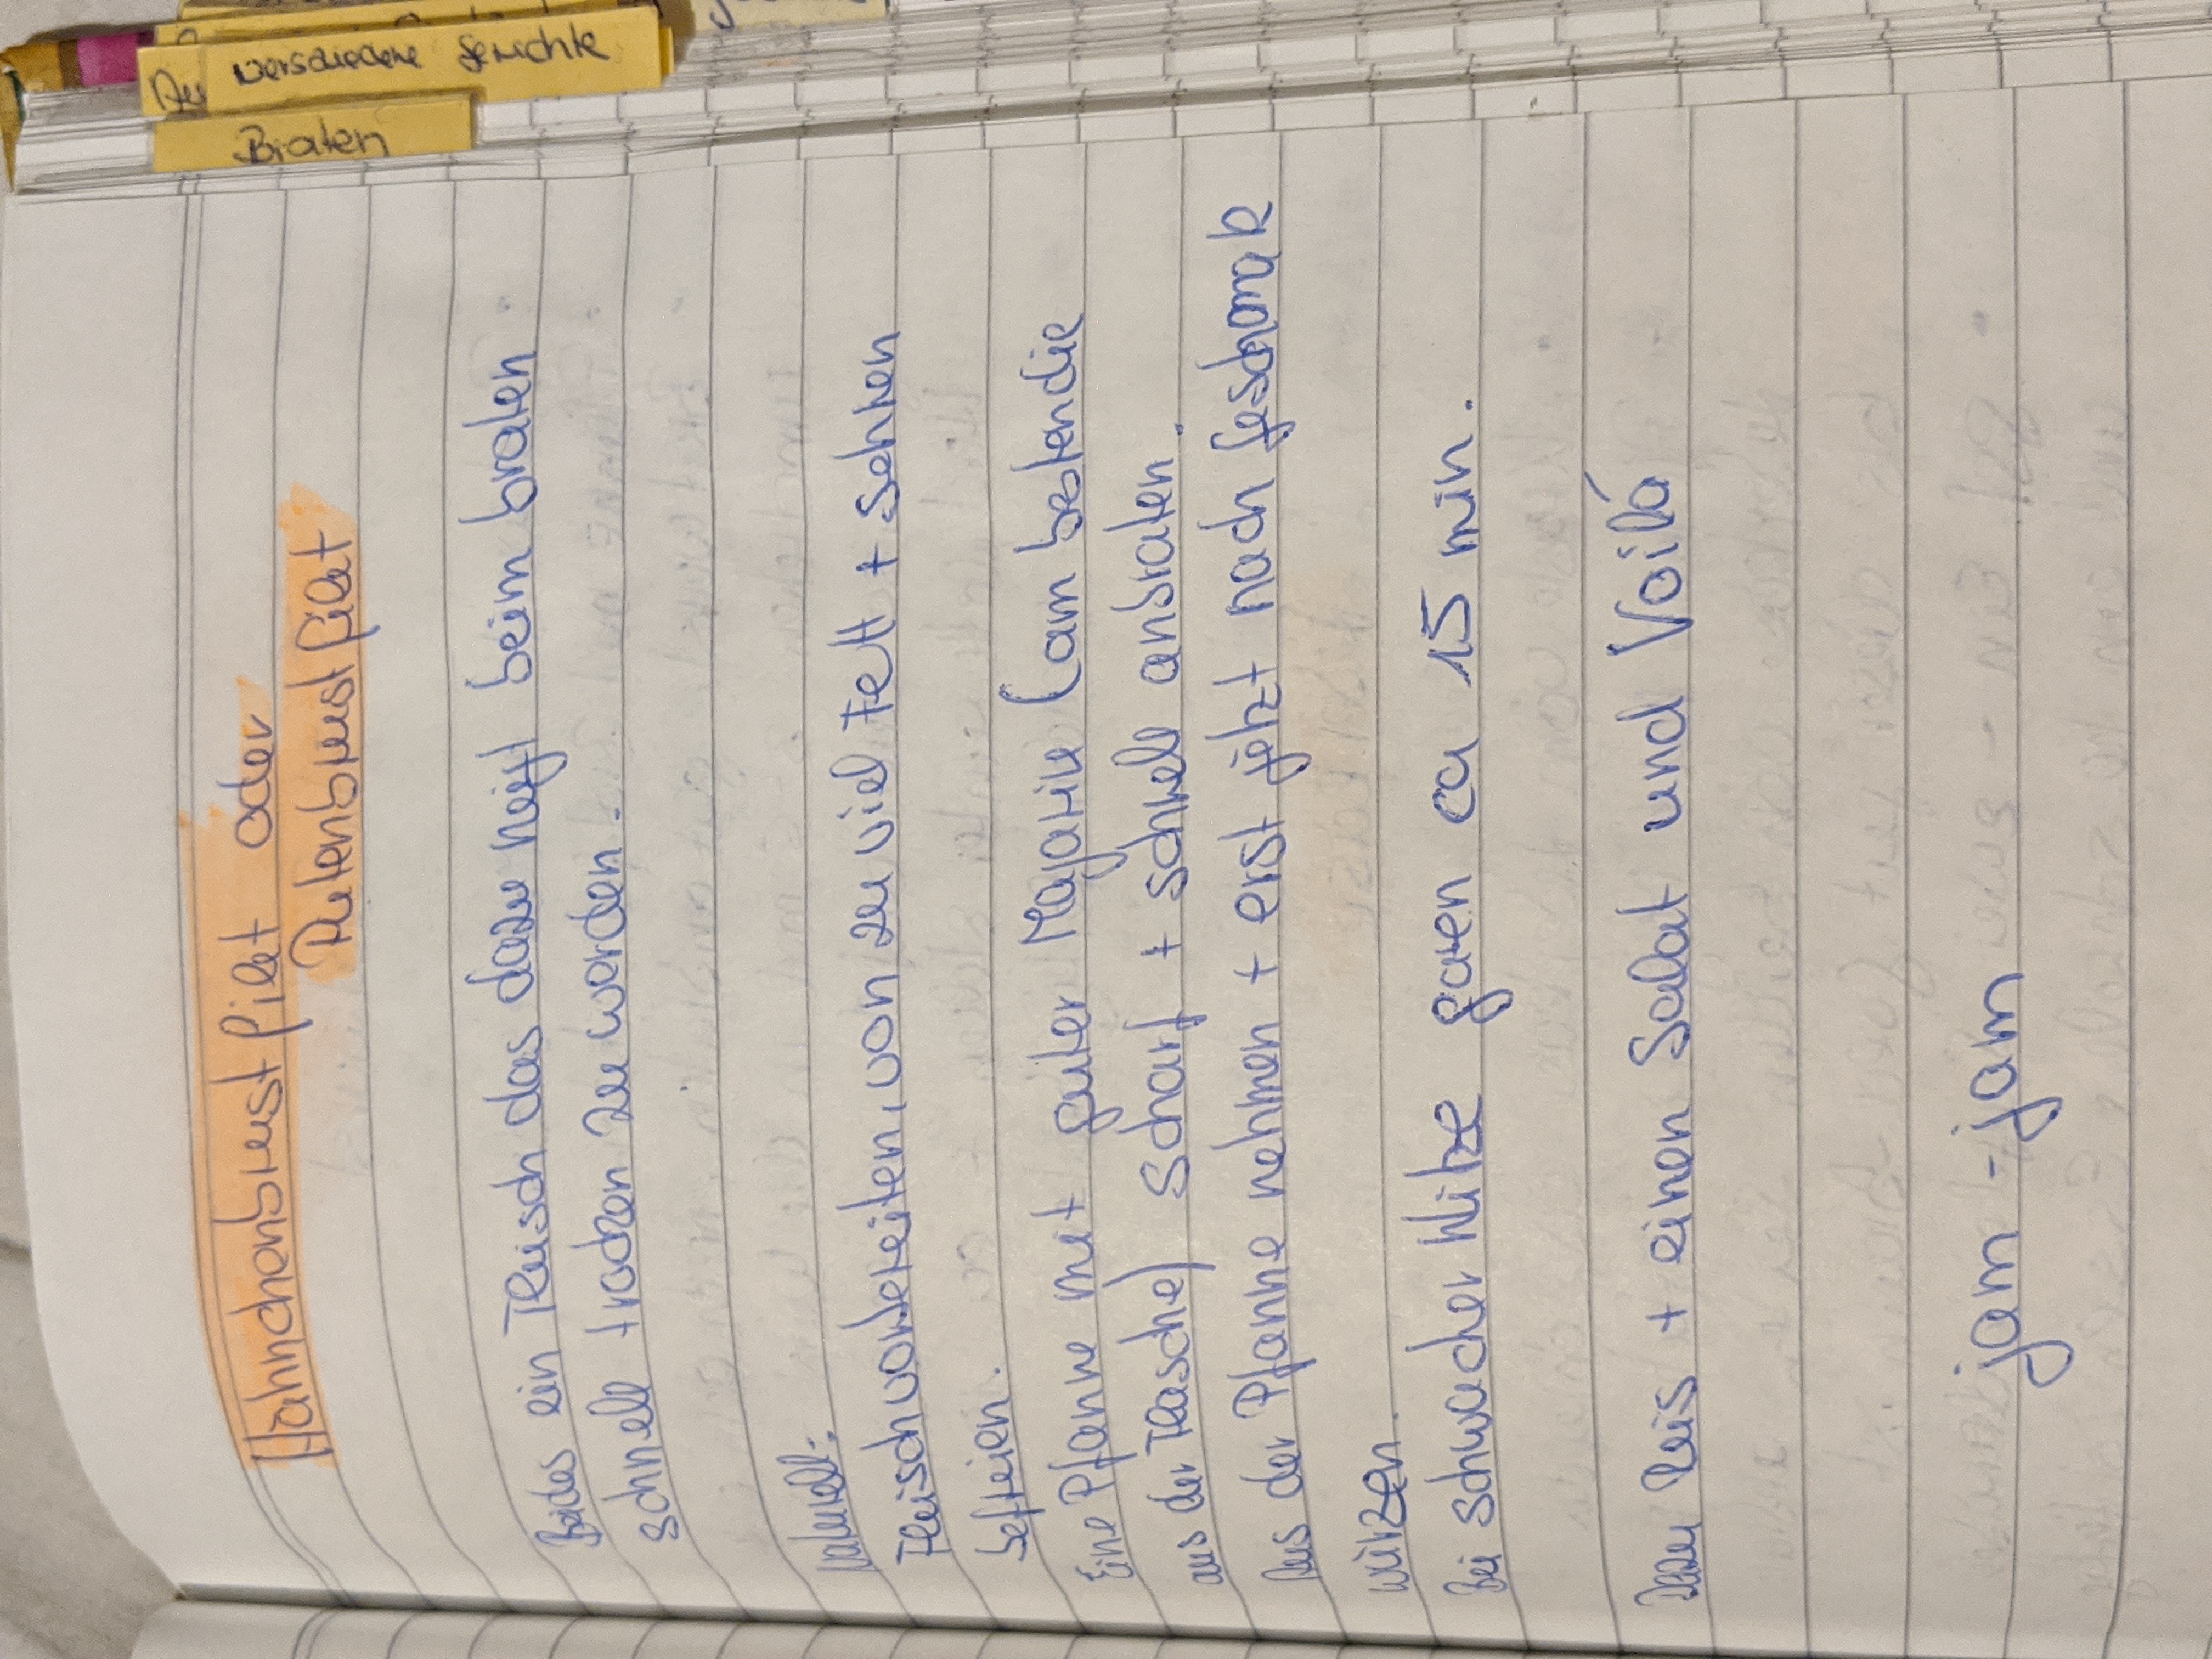 verschiedene Gerichte
Braten
Hähnchenbrust filet oder
Putenbrust filet
Beides ein Fleisch das dazu neigt beim braten
schnell trocken zu werden.
Naturell:
Fleisch vorbereiten, von zu viel Fett + Sehnen
befreien.
Eine Pfanne mit guter Magarine (am besten die
aus der Flasche) scharf + schnell anbraten.
Aus der Pfanne nehmen + erst jetzt nach Geschmack
würzen.
Bei schwacher Hitze garen ca 15 min.
Dazu Reis + einen Salat und Voilá
jam - jam